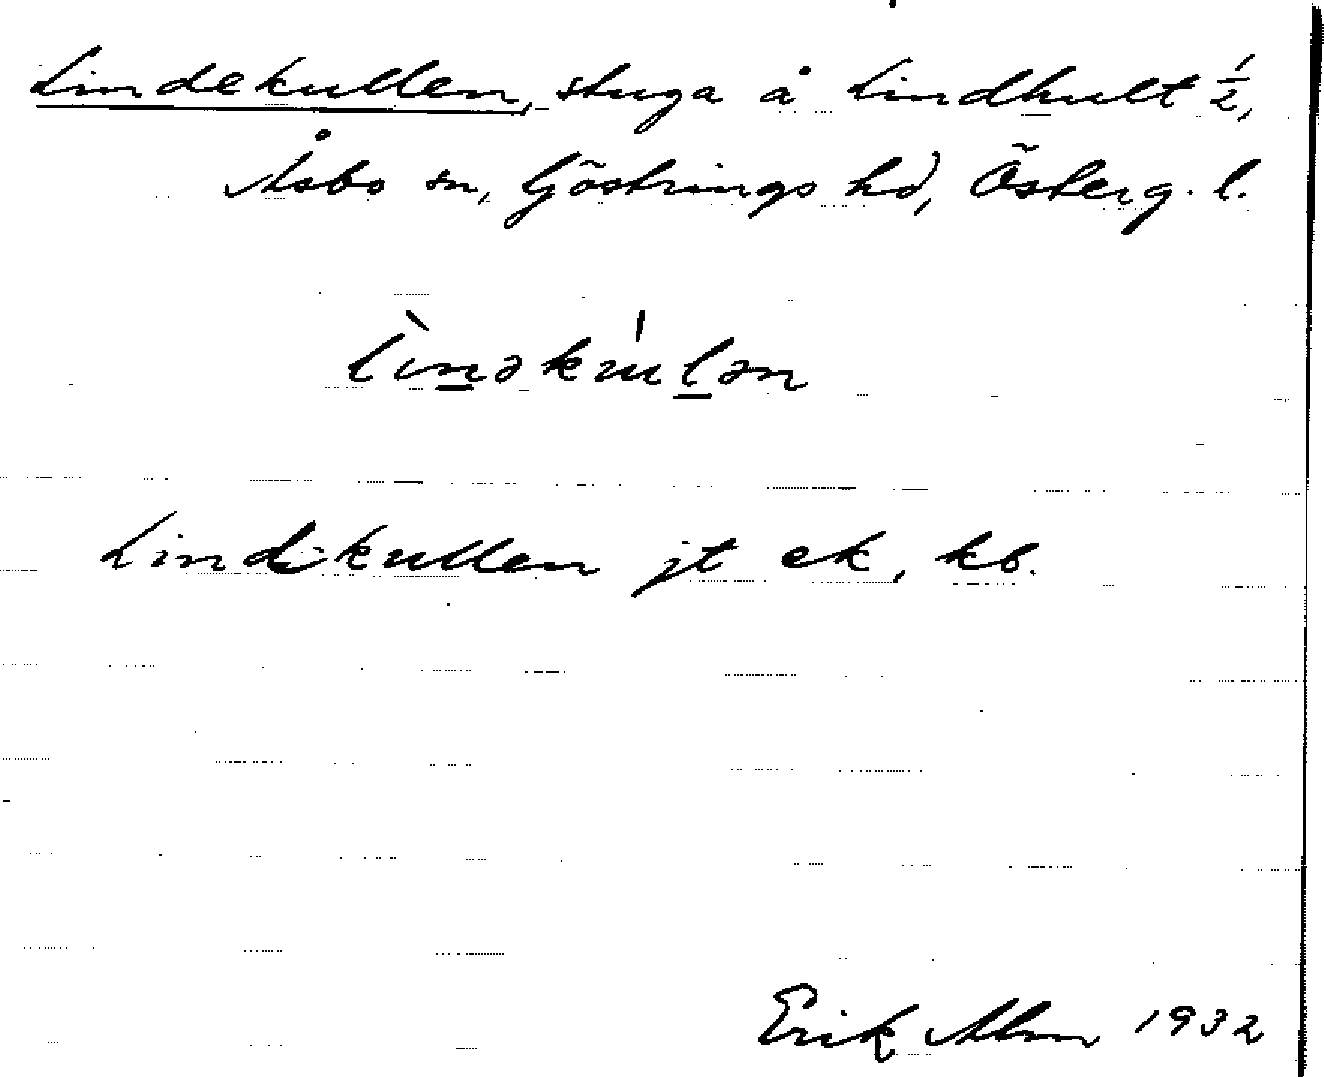 Lindekullen, stuga å Lindhult ½,
Åsbo sn, Göstrings hd, Österg. l.
lìnəkúlən
Lindekullen jt ek, kb.
Erik Alm 1932